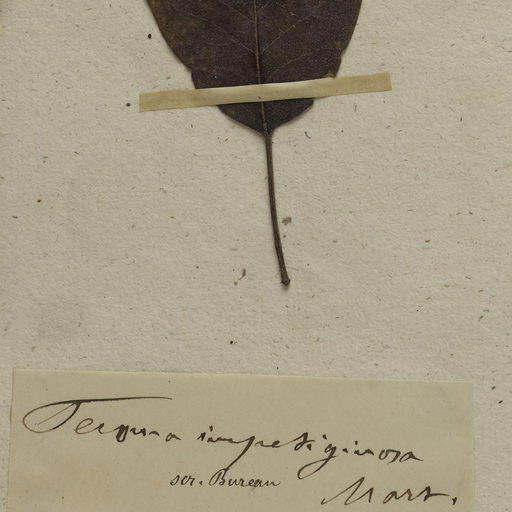 Tecoma impetiginosa
scr. Bureau
Mart.